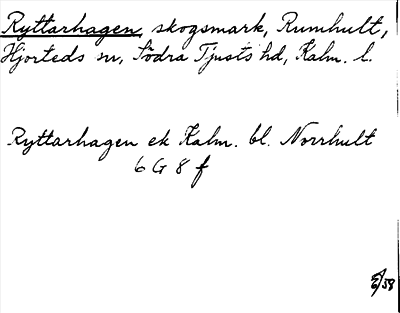 Ryttarhagen, skogsmark, Rumhult,
Hjorteds sn, Södra Tjusts hd, Kalm. l.
Ryttarhagen ek Kalm. bl. Norrhult
6 G 8 f